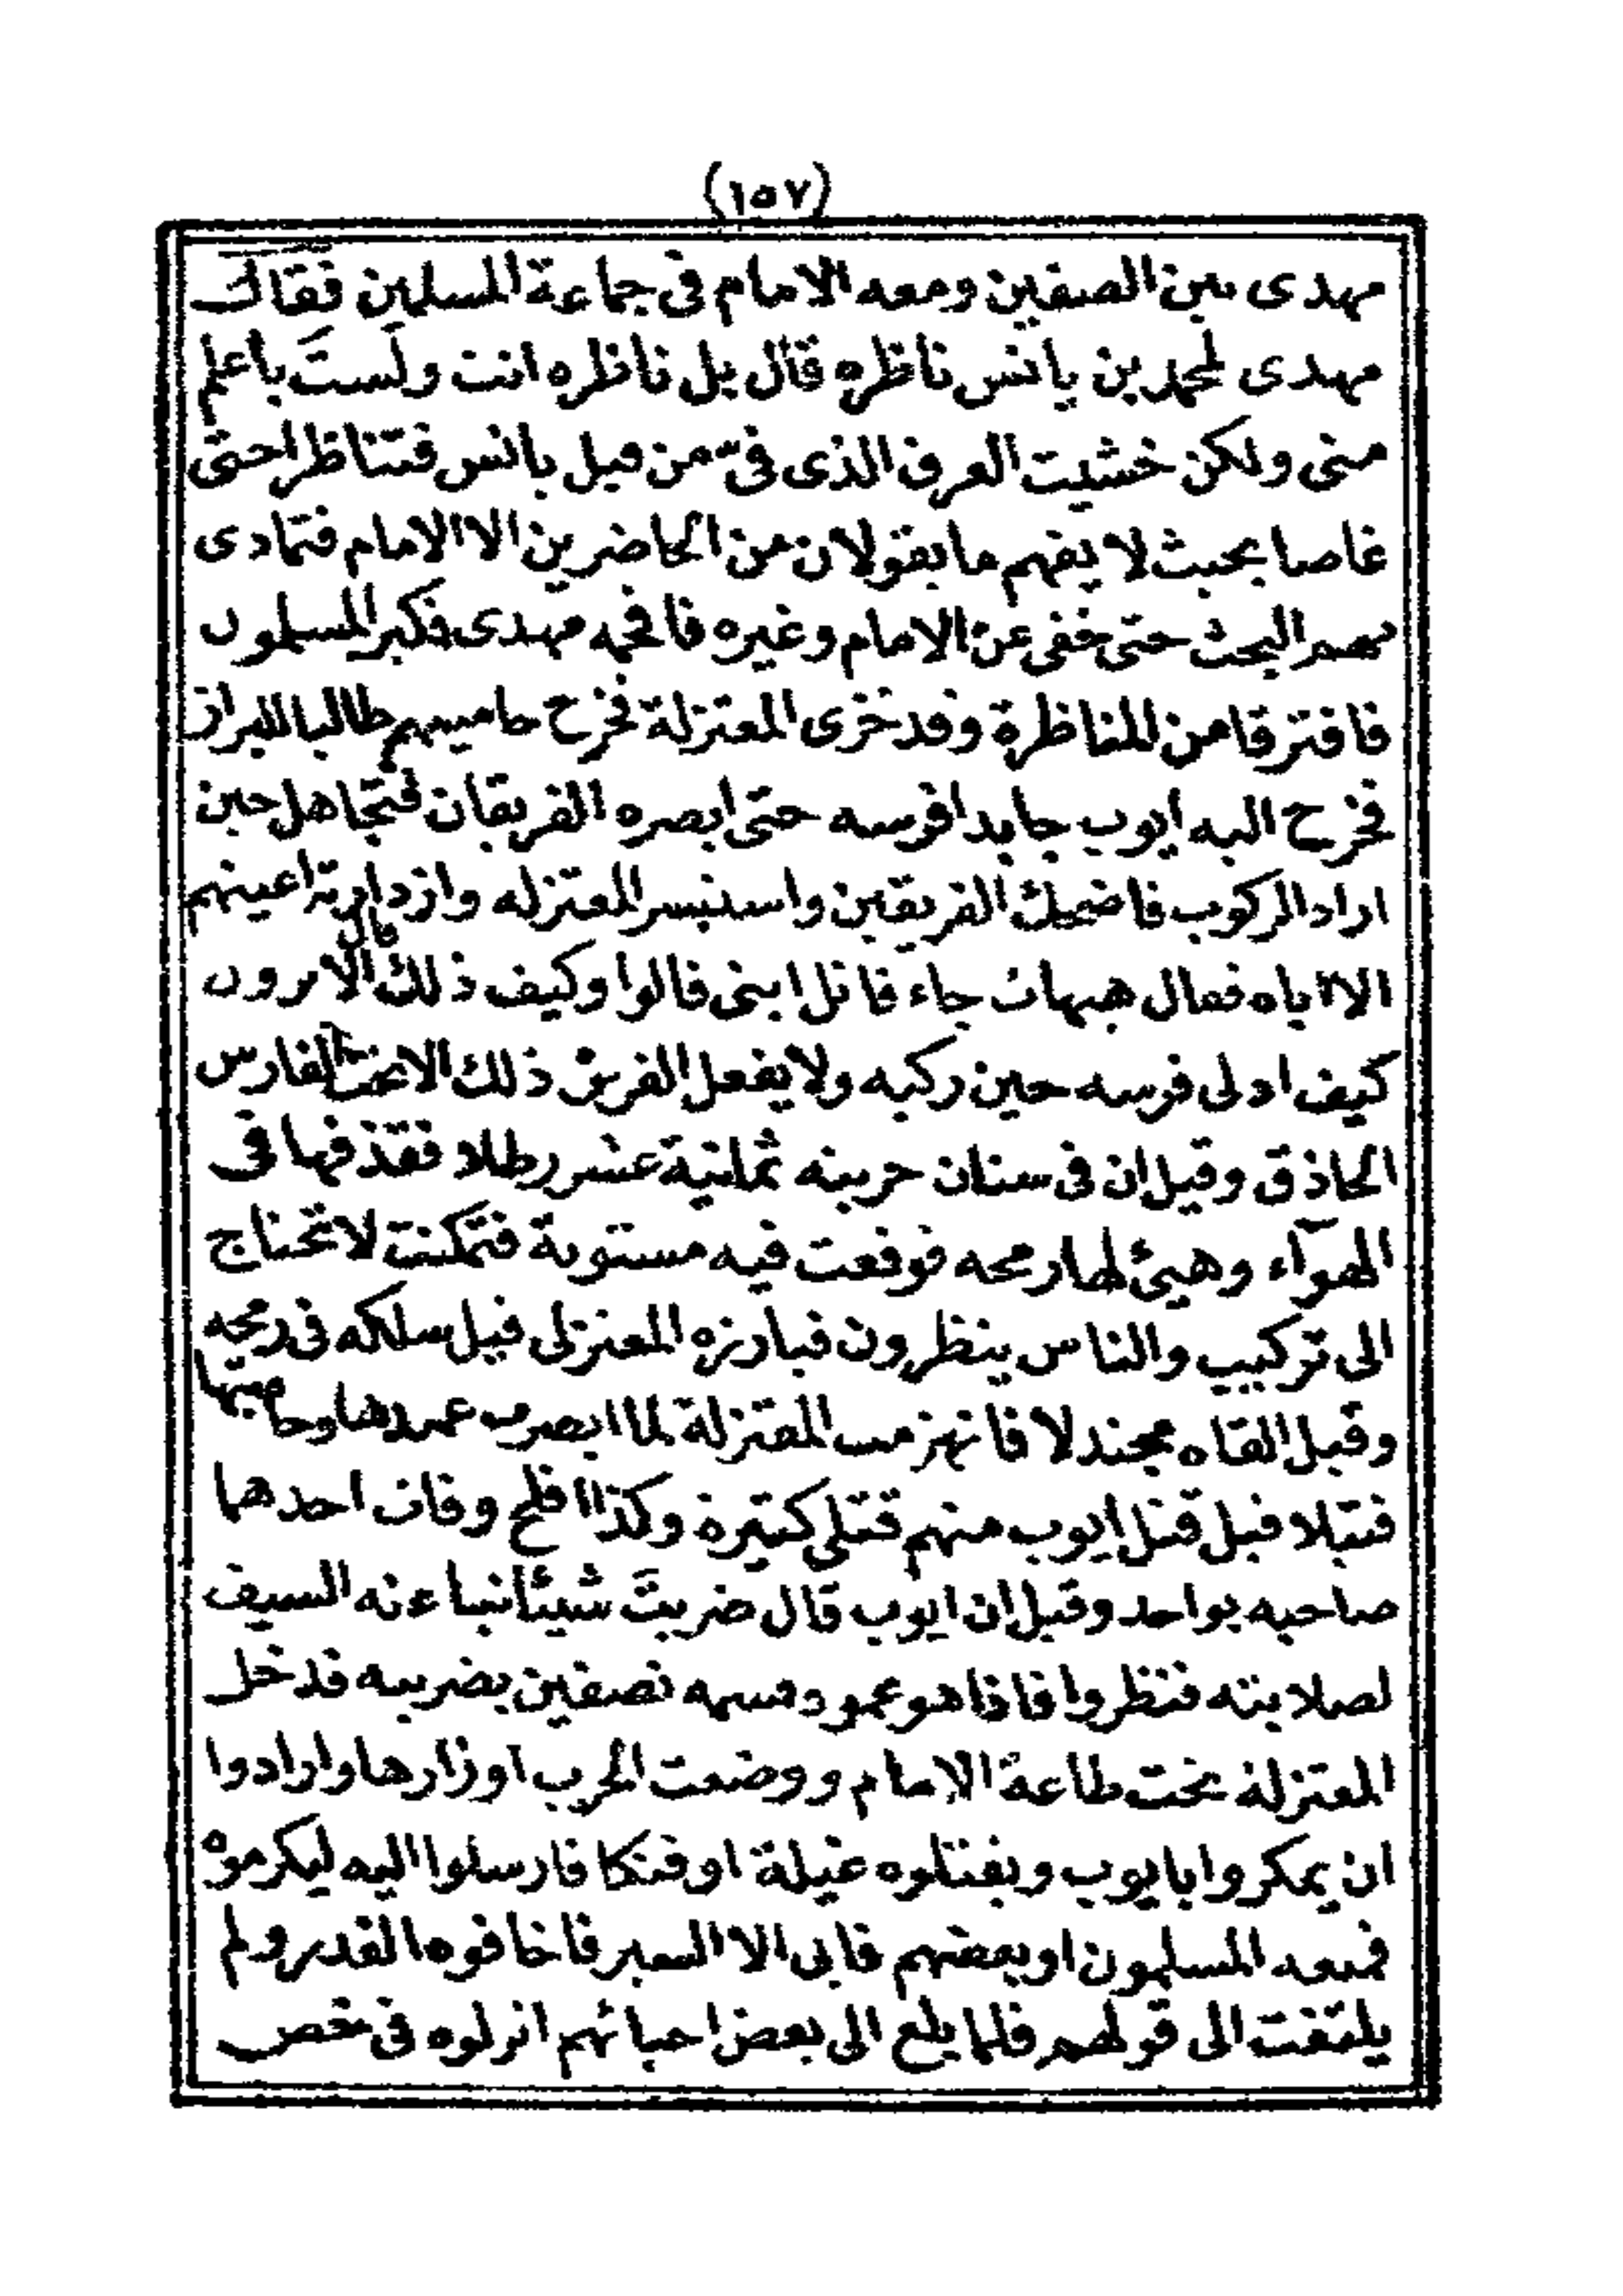 (١٥٧)
مهدى بين الصفين ومعه الامام فى جماعة المسلمين فقال
مهدى لمحمد بن يانس ناظره قال بل ناظره انت ولستَ بأعلم
منى ولكن خشيت العرق الذى فىّ من قبل يانس فتناظرا حتى
غاصا بحيث لا يفهم ما يقولان من الحاضرين الا الامام فتمادى
بهم البحث حتى خفى عن الامام وغيره فافحمه مهدى فكبر المسلمون
فافترقا من المناظرة وقد خزى المعتزلة فخرج حاميهم طالبا للبراز
فخرج اليه ايوب جابدا فرسه حتى ابصره الفريقان فتجاهل حين
اراد الركوب فاضحك الفريقين واستبشر المعتزله وازدارته اعينهم
الا اباه فقال هيهات جاء قاتل ابنى قالوا وكيف ذلك قال الا ترون
كيف ادلى فرسه حين ركبه ولا يفعل الفرس ذلك الا تحت الفارس
الحاذق وقيل ان فى سنان حربته ثمانية عشر رطلا فقذفها فى
الهوآء وهيئ لها رمحه فوقعت فيه مستوية فتمكنت لا تحتاج
الى تركيب والناس ينظرون فبارزه المعتزلى قيل سلكه فى رمحه
وقيل القاه مجندلا فانهزمت المعتزلة لما ابصرت عميدها وحاميها
قتيلا قيل قتل ايوب منهم قتلى كثيرة وكذا افلح وفات احدهما
صاحبه بواحد وقيل ان ايوب قال ضربتَ شيئا نباء عنه السيف
لصلابته فنظروا فاذا هو عمود قسمه نصفين بضربه فدخل
المعتزلة تحت طاعة الامام ووضعت الحرب اوزارها وارادوا
ان يمكروا بايوب ويقتلوه غيلة او فتكا فارسلوا اليه ليكرموه
فمنعه المسلمون او بعضهم فابى الا السير فاخافوه الغدر ولم
يلتفت الى قولهم فلما بلغ الى بعض احيائهم انزلوه فى خص